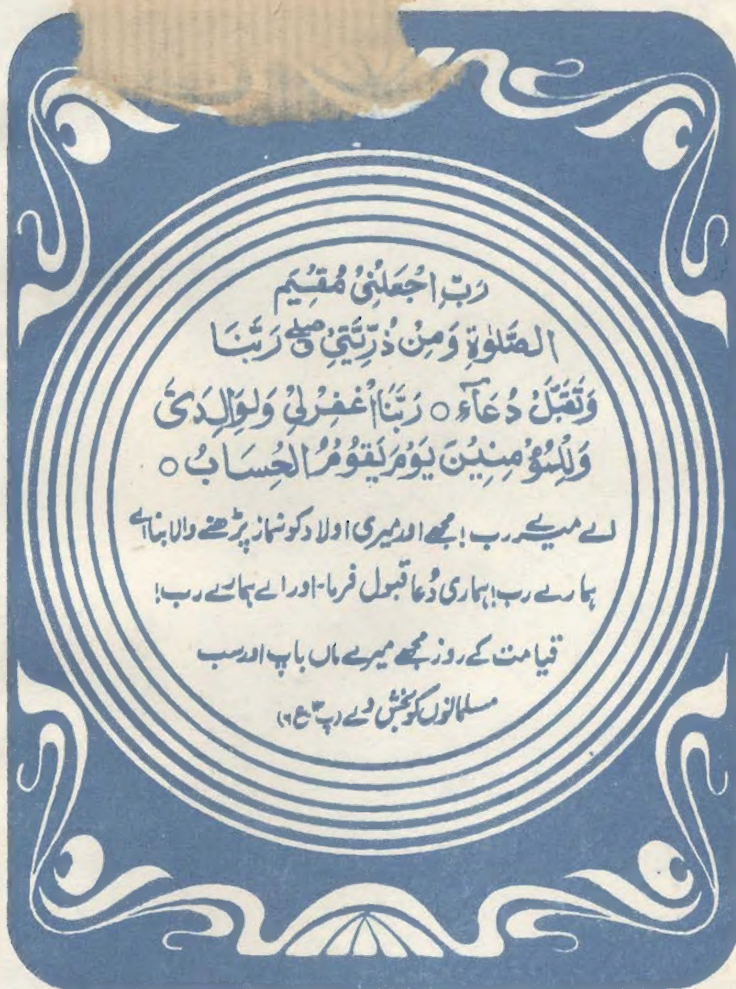 رَبِّ اجْعَلْنِیْ مُقِیْمَ
الصَّلٰوةِ وَمِنْ ذُرِّیَّتِیْ صلے رَبَّنَا
وَتَقَبَّلْ دُعَآءِ ○ رَبَّنَا اغْفِرْلِیْ وَلِوَالِدَیَّ
وَلِلْمُؤْمِنِیْنَ یَوْمَ یَقُوْمُ الْحِسَابُ ○
اے میرے رب! مجھے اور میری اولاد کو نماز پڑھنے والا بنا اے
ہمارے رب! ہماری دُعا قبول فرما۔ اور اے ہمارے رب!
قیامت کے روز مجھے میرے ماں باپ اور سب
مسلمانوں کو بخش دے